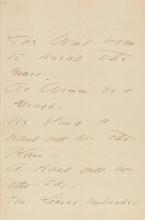 The Wind begun
to knead the
Grass -
As Women do a
Dough -
He flung a
Hand full at the
Plain -
A Hand full at
the Sky -
The Leaves unhooked